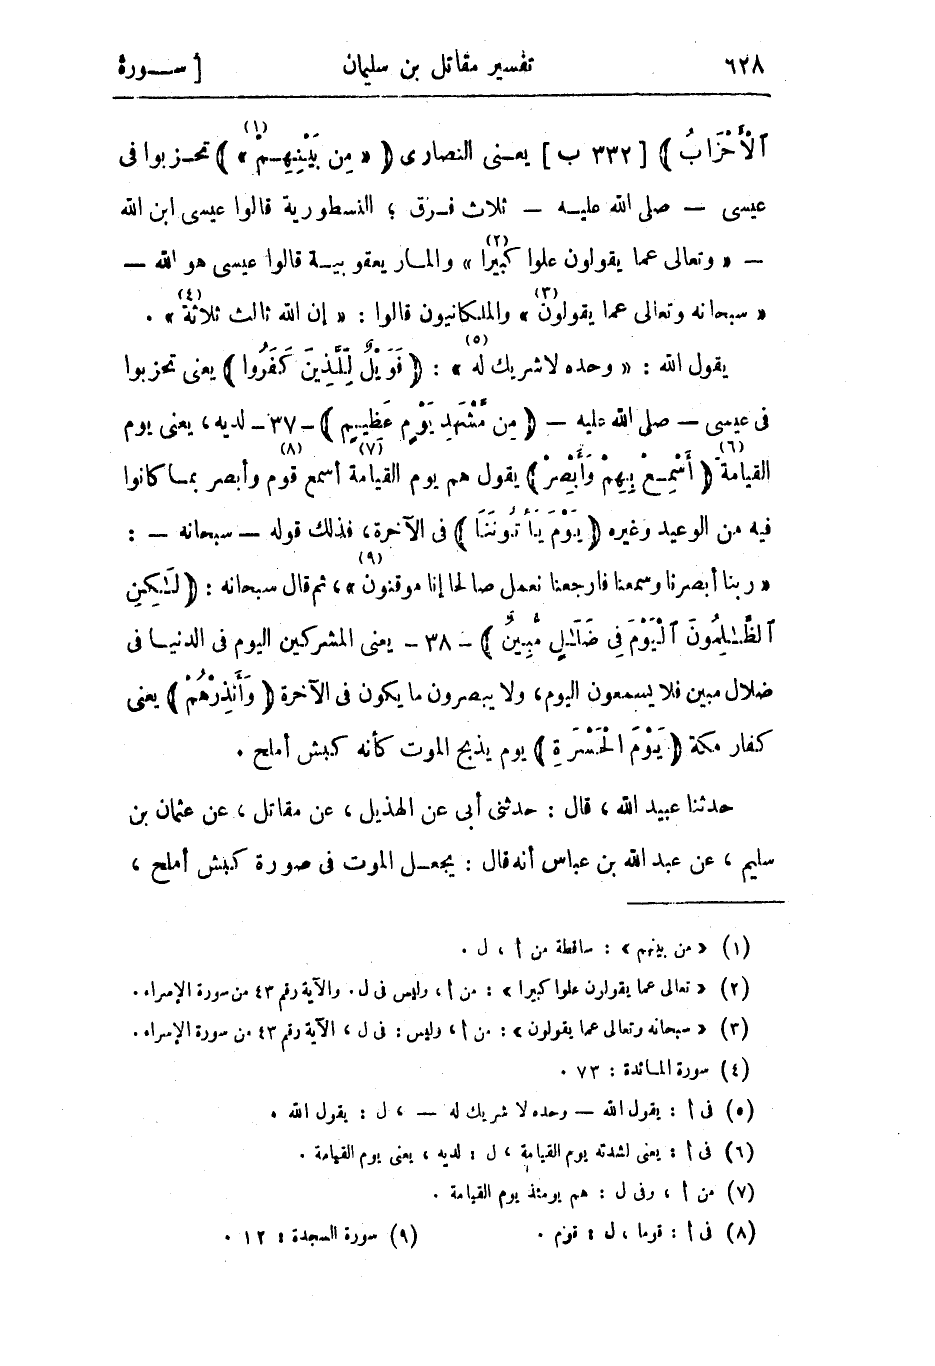 ٦٢٨ تفسير مقاتل بن سليمان [ ســورة
ٱلْأَحْزَابُ ﴾ [ ٣٣٢ ب ] يعنى النصارى ﴿ « مِن بَيْنِهِمْ(١) » ﴾ تحزبوا فى
عيسى — صلى الله عليه — ثلاث فرق ؛ النسطورية قالوا عيسى ابن الله
— « وتعالى عما يقولون علوا كبيرا(٢) » والمار يعقوبية قالوا عيسى هو الله —
« سبحانه وتعالى عما يقولون(٣) » والملكانيون قالوا : « إن الله ثالث ثلاثة(٤) » .
يقول الله : « وحده لا شريك له(٥) » : ﴿ فَوَيْلٌ لِّلَّذِينَ كَفَرُوا ﴾ يعنى تحزبوا
فى عيسى — صلى الله عليه — ﴿ مِن مَّشْهَدِ يَوْمٍ عَظِيمٍ ﴾ -٣٧- لديه ، يعنى يوم
القيامة(٦) ﴿ أَسْمِعْ بِهِمْ وَأَبْصِرْ ﴾ يقول هم يوم القيامة(٧) أسمع قوم(٨) وأبصر بما كانوا
فيه من الوعيد وغيره ﴿ يَوْمَ يَأْتُونَنَا ﴾ فى الآخرة ، فذلك قوله — سبحانه — :
« ربنا أبصرنا وسمعنا فارجعنا نعمل صالحا إنا موقنون(٩) » ، ثم قال سبحانه : ﴿ لَـٰكِنِ
ٱلظَّـٰلِمُونَ ٱلْيَوْمَ فِى ضَلَـٰلٍ مُّبِينٍ ﴾ - ٣٨ - يعنى المشركين اليوم فى الدنيا فى
ضلال مبين فلا يسمعون اليوم ، ولا يبصرون ما يكون فى الآخرة ﴿ وَأَنذِرْهُمْ ﴾ يعنى
كفار مكة ﴿ يَوْمَ الْحَسْرَةِ ﴾ يوم يذبح الموت كأنه كبش أملح .
حدثنا عبيد الله ، قال : حدثنى أبى عن الهذيل ، عن مقاتل ، عن عثمان بن
سليم ، عن عبد الله بن عباس أنه قال : يجعل الموت فى صورة كبش أملح ،
(١) « من بينهم » : ساقطة من أ ، ل .
(٢) « تعالى عما يقولون علوا كبيرا » : من أ ، وليس فى ل . والآية رقم ٤٣ من سورة الإسراء .
(٣) « سبحانه وتعالى عما يقولون » : من أ ، وليس : فى ل ، الآية رقم ٤٣ من سورة الإسراء .
(٤) سورة المائدة : ٧٣ .
(٥) فى أ : يقول الله — وحده لا شريك له — ، ل : يقول الله .
(٦) فى أ : يعنى لشدته يوم القيامة ، ل : لديه ، يعنى يوم القيامة .
(٧) من أ ، وفى ل : هم يومئذ يوم القيامة .
(٨) فى أ : قوما ، ل : قوم . (٩) سورة السجدة : ١٢ .